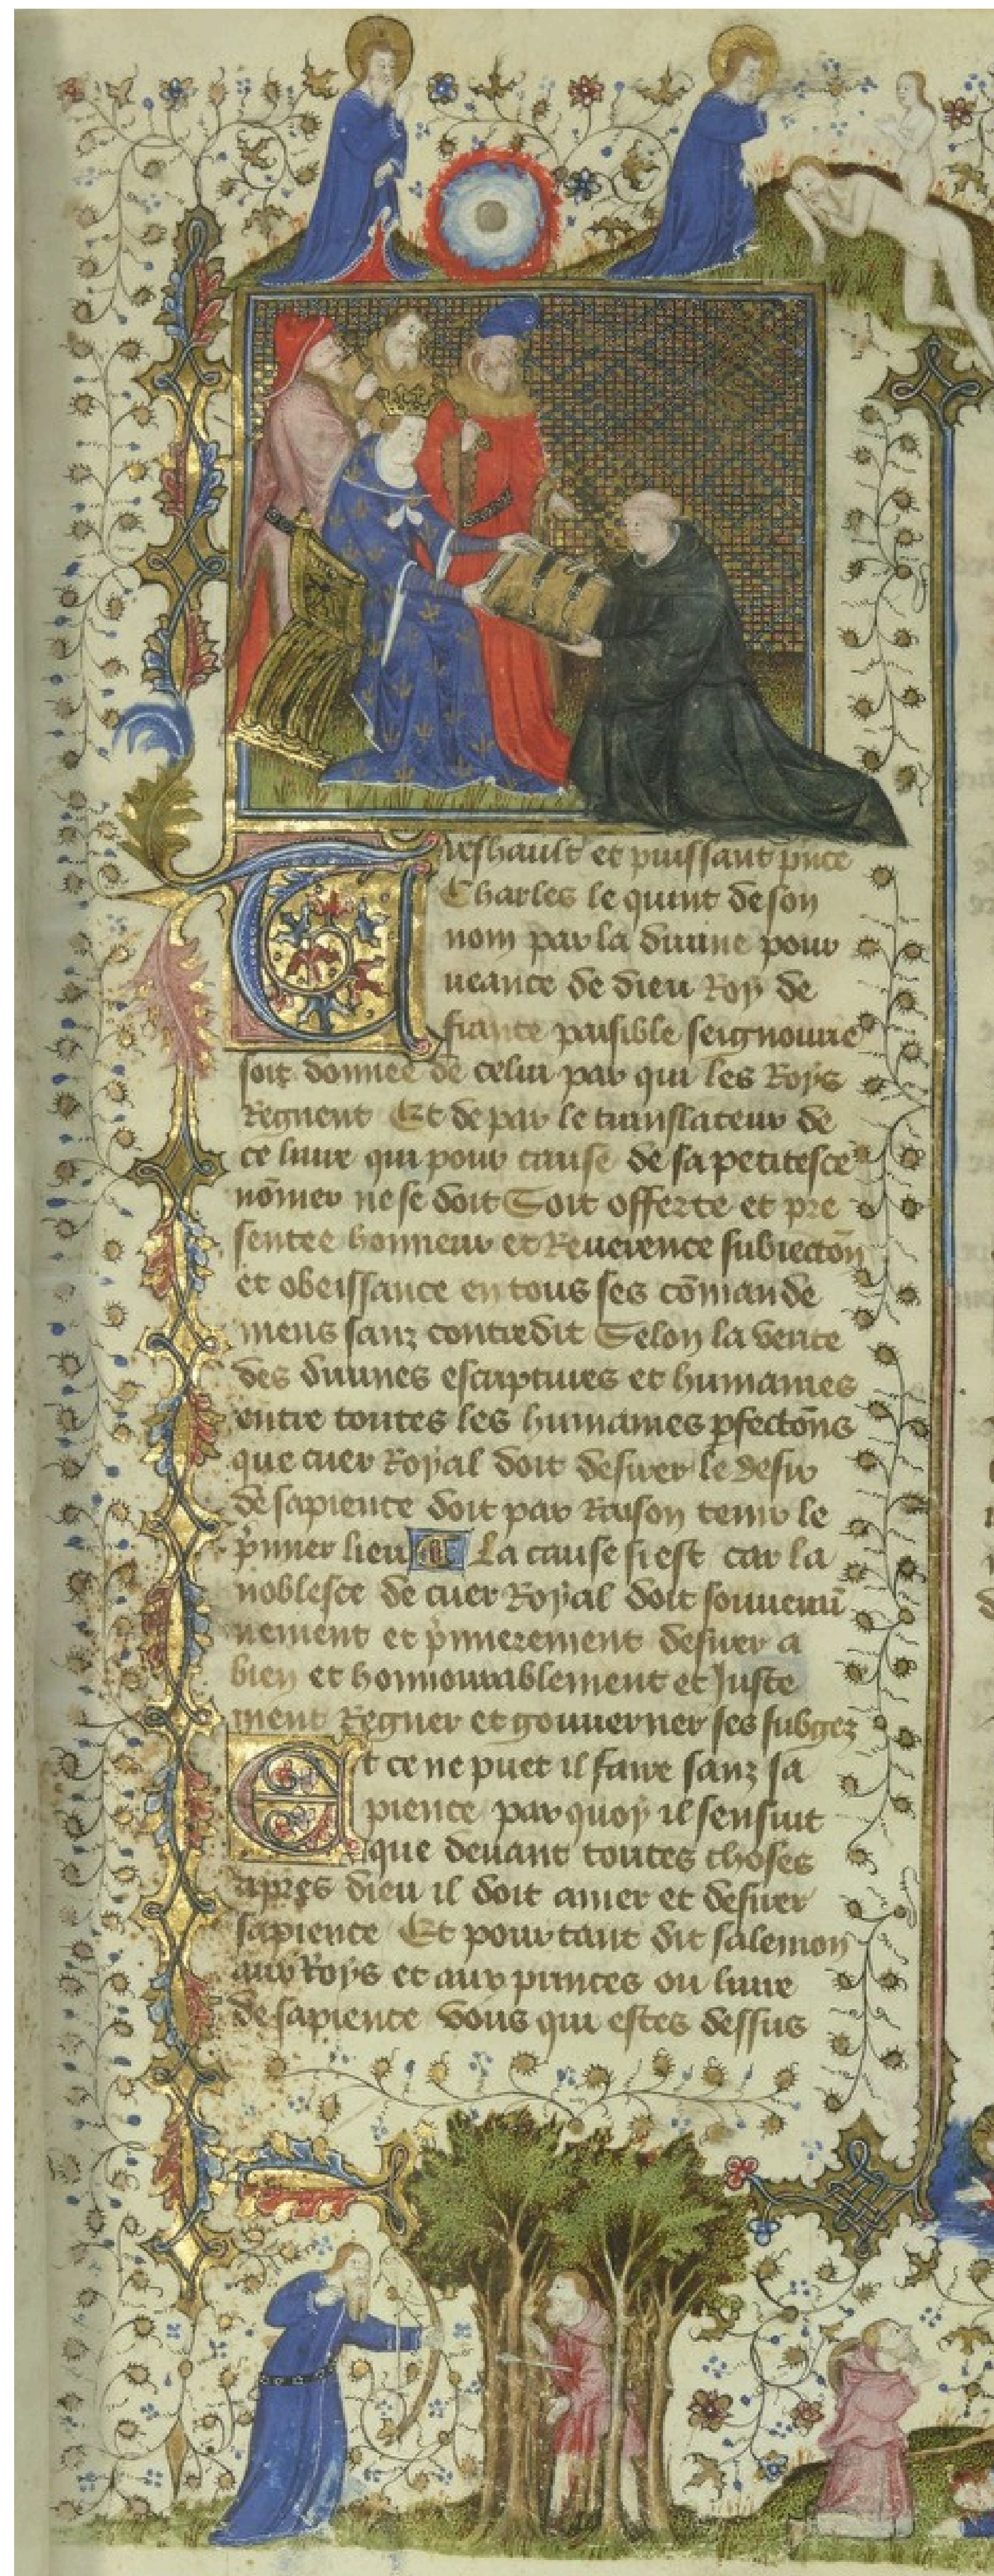 Treshault et puissant pnce
Charles le quint de son
nom par la diuine pour
ueance de dieu Roy de
france paisible seignourie
soit donnee de celui par qui les Roys
Regnent Et de par le translateur de
ce liure qui pour cause de sa petitesce
nōmer ne se doit Soit offerte et pre
sentee honneur et Reuerence subiectōn
et obeissance en tous ses cōmande
mens sanz contredit Selon la verite
des diuines escriptures et humaines
entre toutes les humaines pfectōns
que cuer Royal doit desirer le desir
de sapience doit par Raison tenir le
pmier lieu La cause si est car la
noblesce de cuer Royal doit souuerai
nement et pmierement desirer a
bien et honnourablement et Juste
ment Regner et gouuerner ses subgez
Et ce ne puet il faire sanz sa
pience par quoy il sensuit
que deuant toutes choses
apres dieu il doit amer et desirer
sapience Et pour tant dit salemon
aux Roys et aux princes ou liure
de sapience vous qui estes dessus